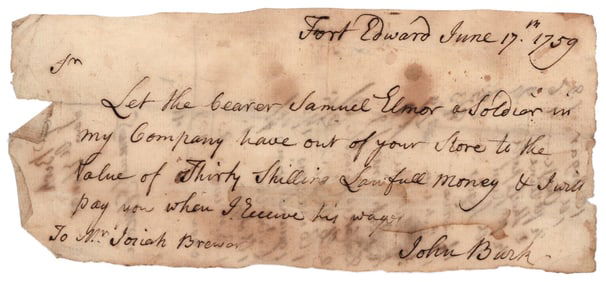 Fort Edward June 17.th 1759
Sr
Let the bearer Samuel Elmor a Soldier in
my Company have out of your Store to the
Value of Thirty Shilling Lawfull money & I will
pay you when I Receive his wages
To Mr Josiah Brewer
John Burk